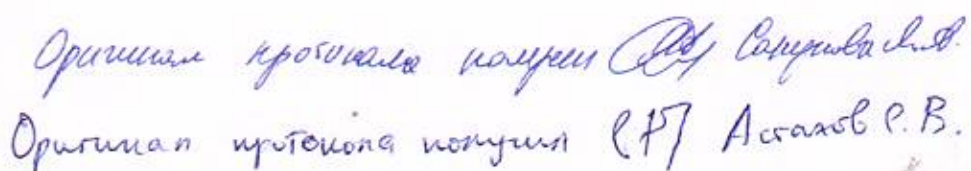 Оригинал протокола получил
Оригинал протокола получил Астахов С. В.